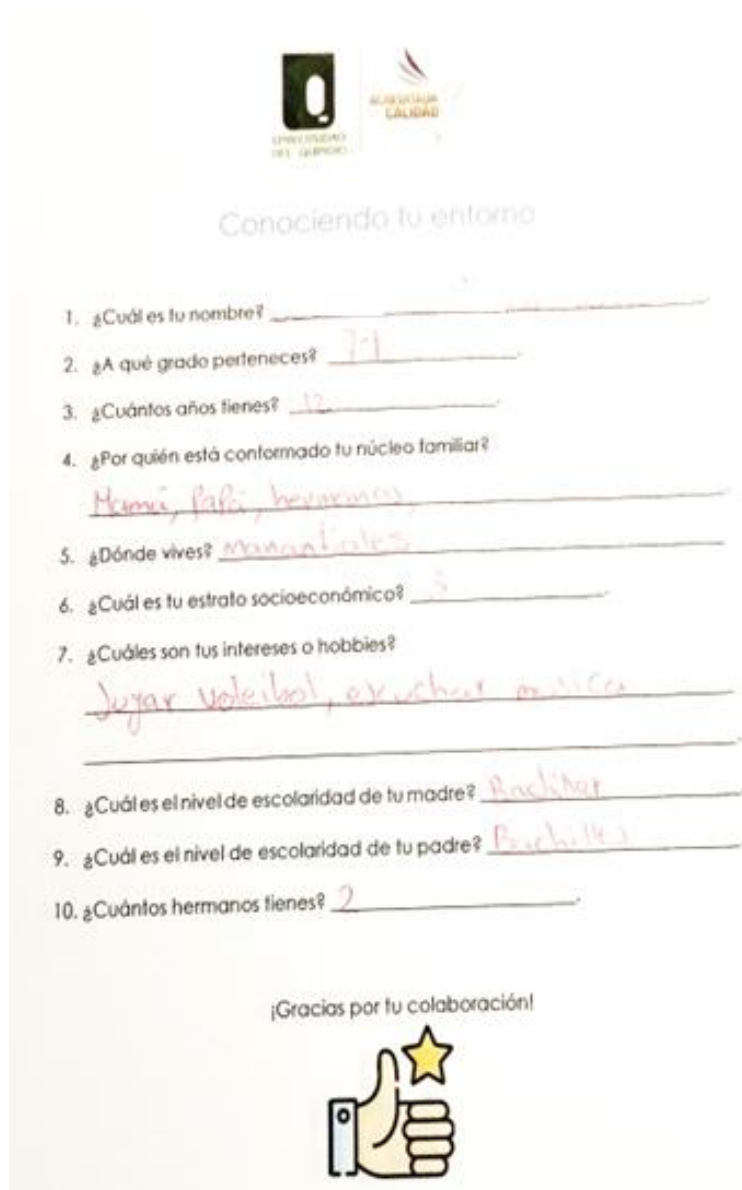 UNIVERSIDAD
DEL QUINDÍO
ACREDITADA
CALIDAD
Conociendo tu entorno
1. ¿Cuál es tu nombre?
2. ¿A qué grado perteneces? 7-1
3. ¿Cuántos años tienes? 12
4. ¿Por quién está conformado tu núcleo familiar?
Mamá, Papá, hermanas,
5. ¿Dónde vives? Manantiales
6. ¿Cuál es tu estrato socioeconómico? 3
7. ¿Cuáles son tus intereses o hobbies?
Jugar voleibol, escuchar musica
8. ¿Cuál es el nivel de escolaridad de tu madre? Bachiller
9. ¿Cuál es el nivel de escolaridad de tu padre? Bachiller
10. ¿Cuántos hermanos tienes? 2
¡Gracias por tu colaboración!